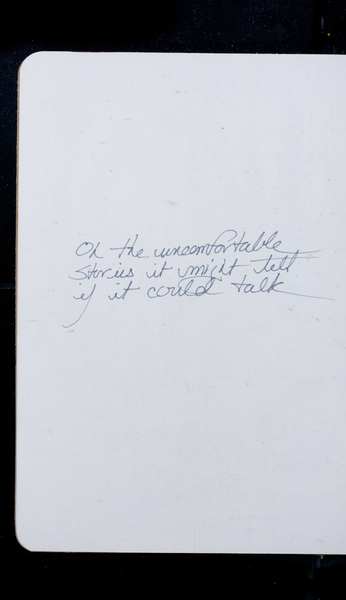 Oh the uncomfortable
stories it might tell
if it could talk